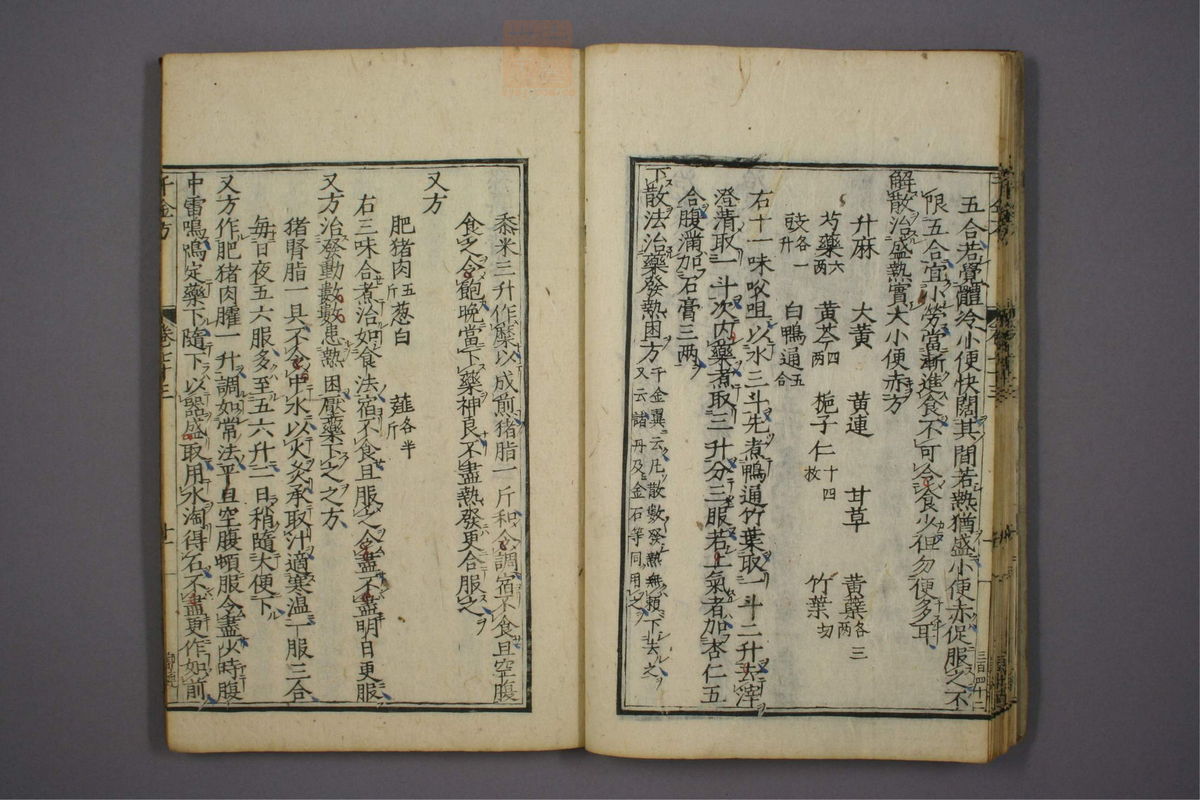 五合若覺體冷小便快闊其間若熱猶盛小便赤促服之不
限五合宜小勞當漸進食不可令食少但勿便多耳
解散治盛熱實大小便赤方
升麻 大黃 黃連 甘草 黃蘗各三兩
芍藥六兩 黃芩四兩 梔子仁十四枚 竹葉切
豉各一升 白鴨通五合
右十一味㕮咀以水三斗先煮鴨通竹葉取一斗二升去滓
澄清取一斗次內藥煮取三升分三服若上氣者加杏仁五
合腹滿加石膏三兩
下散法治藥發熱困方千金翼云凡散數發熱無賴下去之
又云諸丹及金石等同用之
黍米三升作糜以成煎猪脂一斤和令調宿不食旦空腹
食之令飽晚當下藥神良不盡熱發更合服之
又方
肥猪肉五斤 葱白 薤各半斤
右三味合煮治如食法宿不食旦服之令盡不盡明日更服
又方治發動數數患熱困壓藥下之之方
猪腎脂一具不令中水以火炙承取汁適寒溫一服三合
每日夜五六服多至五六升二日稍隨大便下
又方作肥猪肉臛一升調如常法平旦空腹頓服令盡少時腹
中雷鳴鳴定藥下隨下以器盛取用水淘得石不盡更作如前
千金方
卷二十三
三百四十二